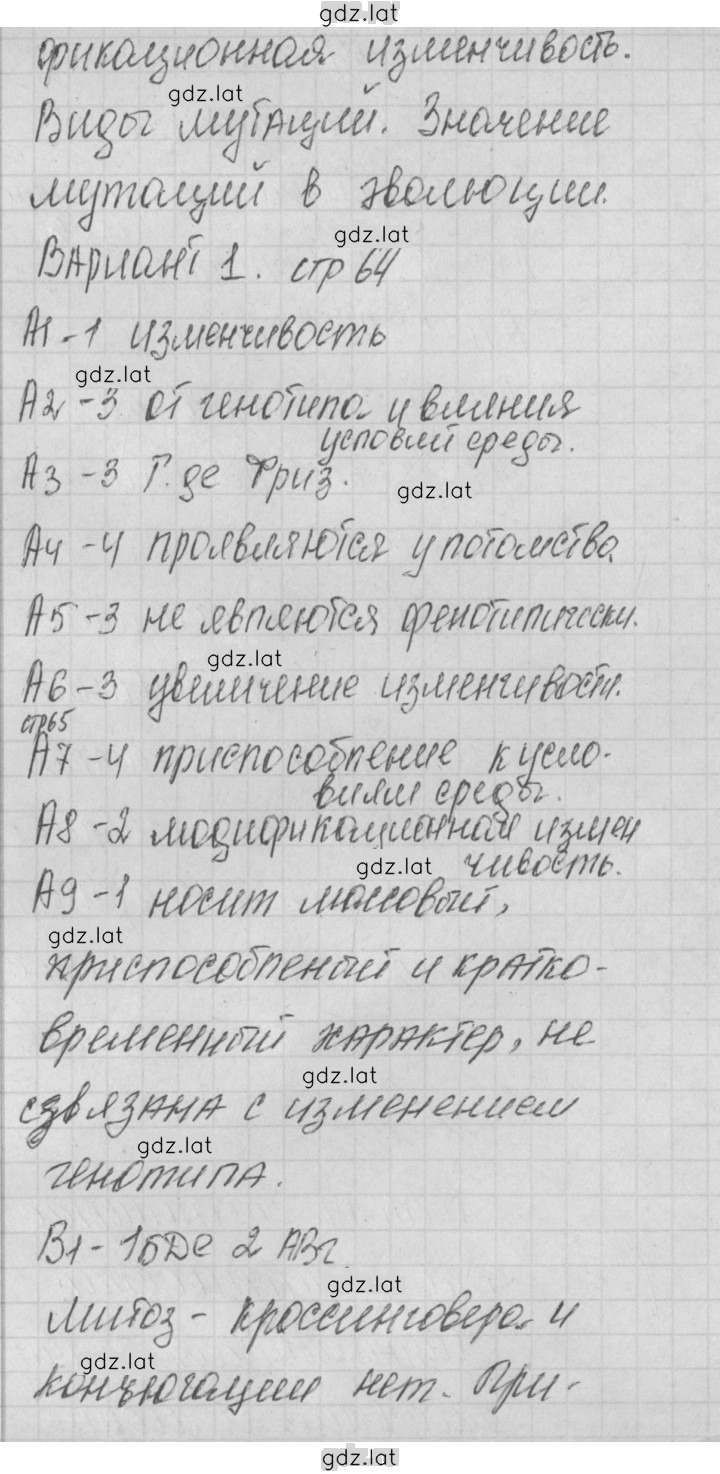 gdz.lat
фикационная изменчивость.
gdz.lat
Виды мутаций. Значение
gdz.lat
мутаций в эволюции.
gdz.lat
Вариант 1. стр 64
А1-1 изменчивость
gdz.lat
А2-3 от генотипа и влияния
условий среды.
А3-3 Г. де Фриз.
gdz.lat
А4-4 проявляются у потомства
А5-3 не являются фенотипически.
gdz.lat
А6-3 увеличение изменчивости.
стр65
А7-4 приспособление к усло-
виям среды.
А8-2 модификационная измен
чивость.
gdz.lat
А9-1 носит массовый,
gdz.lat
приспособленый и кратко-
временный характер, не
gdz.lat
связана с изменением
gdz.lat
генотипа.
В1-1бде 2 АВг
gdz.lat
митоз - кроссинговера и
gdz.lat
конъюгации нет. При-
gdz.lat